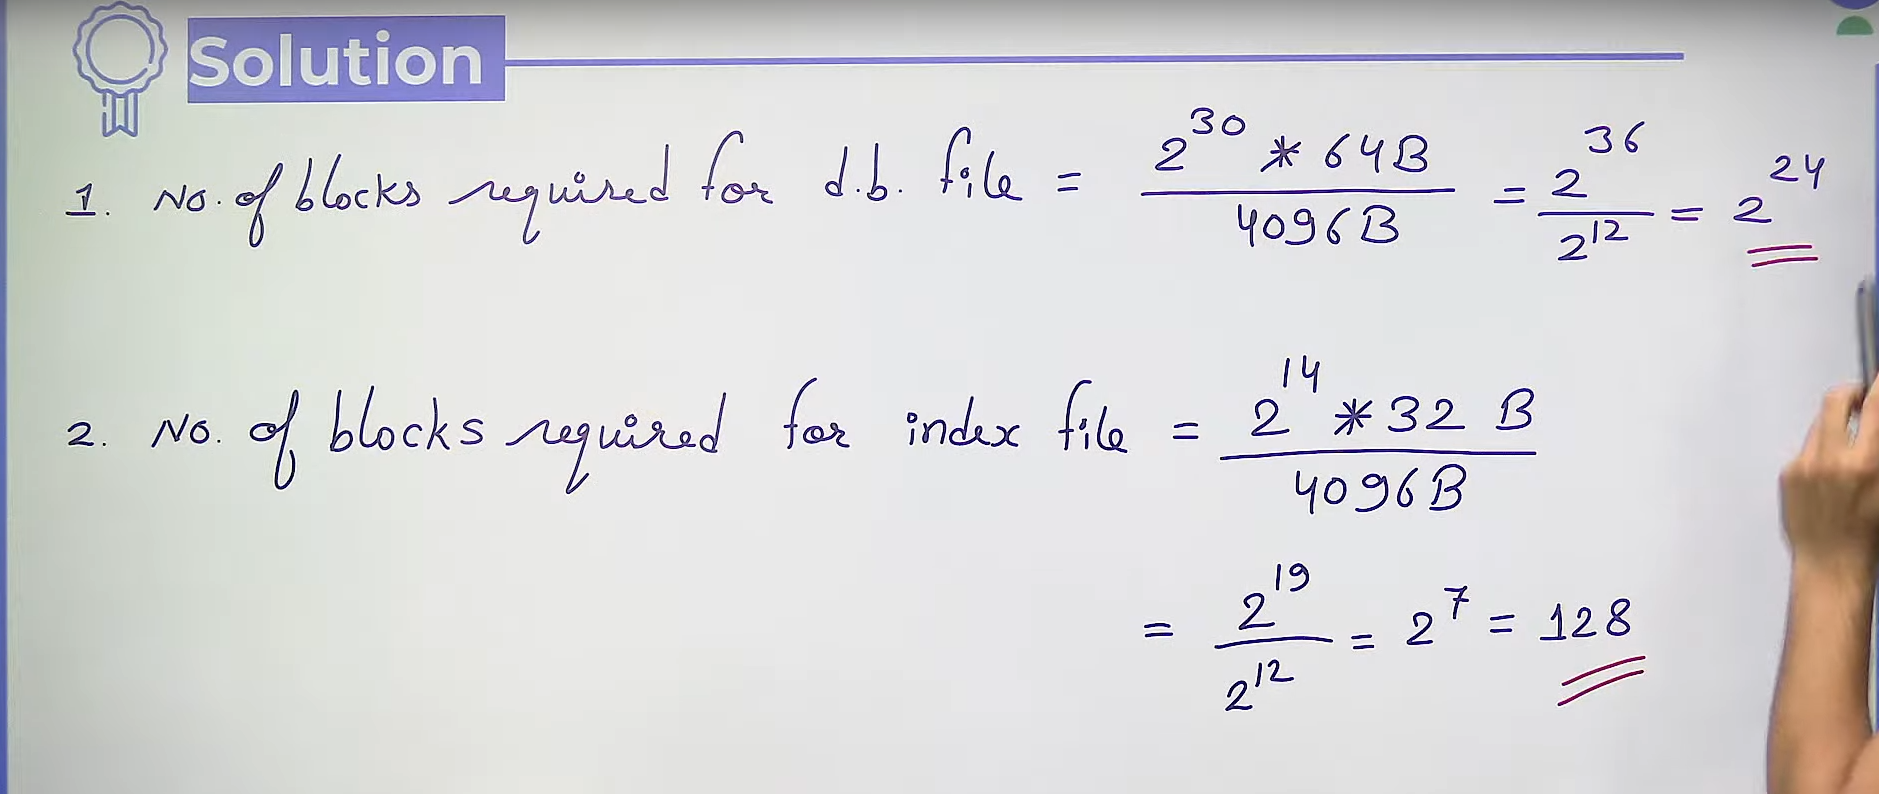 Solution
1. No. of blocks required for d.b. file = 2^30 * 64B / 4096B = 2^36 / 2^12 = 2^24
2. No. of blocks required for index file = 2^14 * 32 B / 4096B
= 2^19 / 2^12 = 2^7 = 128